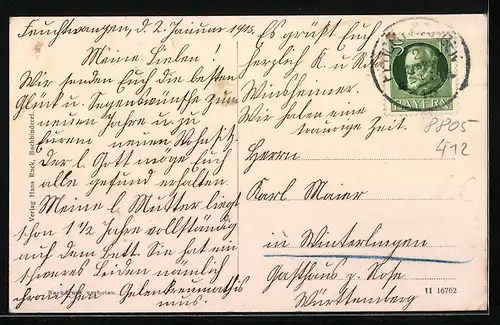 Feuchtwangen, d. 2. Januar 1915.
Meine Lieben!
Wir senden Euch die besten
Glück u. Segenswünsche zum
neuen Jahre u. zu
Eurem neuen Wohnsitz.
Der l. Gott möge Euch
alle gesund erhalten.
Meine l. Mutter liegt
schon 1 1/2 Jahre vollständig
auf dem Bett. Sie hat ein
schweres Leiden nämlich
chronischen Gelenkreumathis
mus.
Es grüßt Euch
herzlich K. u. Rosa
Winsheimer.
Wir haben eine
traurige Zeit.
BAYERN
8805
412
Herrn
Karl Maier
in Winterlingen
Gasthaus z. Rose
Württemberg
Verlag Hans Rack, Buchbinderei.
Nachdruck verboten.
11 16762